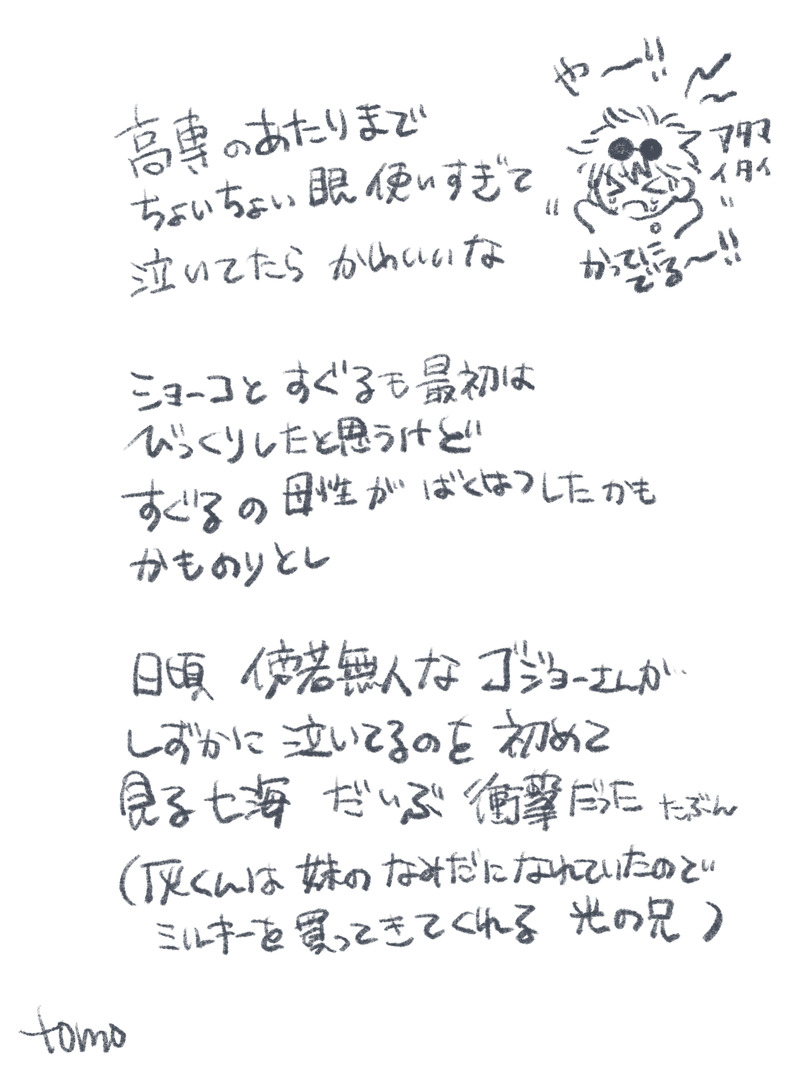 高専のあたりまで
ちょいちょい眼使いすぎて
泣いてたらかわいいな
や〜!!
アタマ
イタイ
かってに
でる〜!!
ショーコとすぐるも最初は
びっくりしたと思うけど
すぐるの母性がばくはつしたかも
かものりとし
日頃 傍若無人なゴジョーさんが
しずかに泣いてるのを初めて
見る七海 だいぶ衝撃だった たぶん
(灰くんは妹のなみだになれていたので
ミルキーを買ってきてくれる 光の兄)
tomo